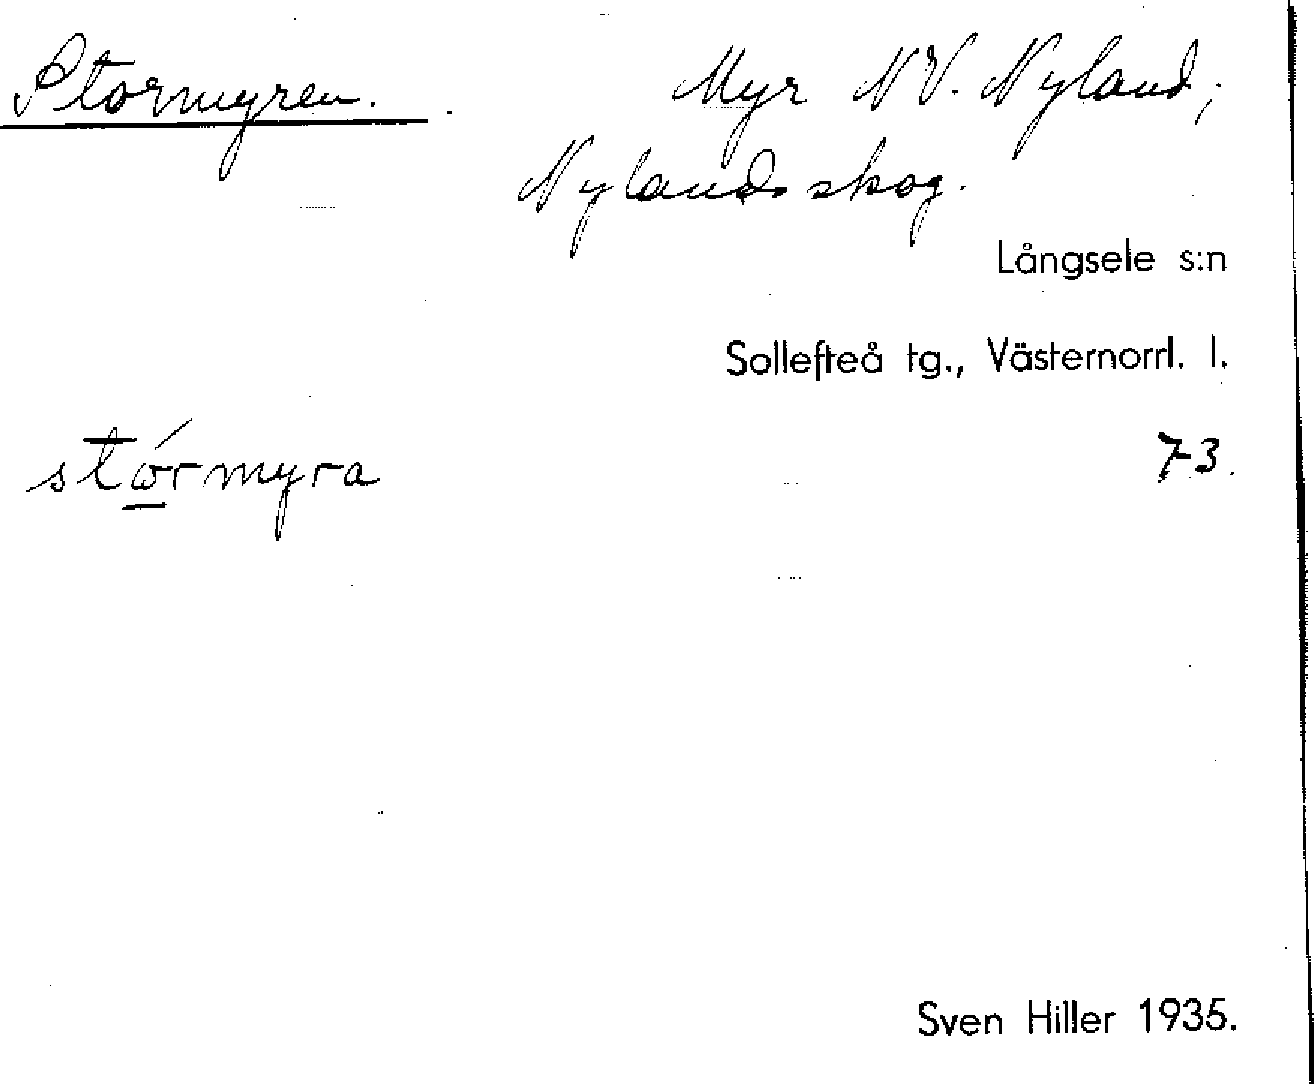 Stormyren. Myr NV. Nyland;
Nylandsskog.
Långsele s:n
Sollefteå tg., Västernorrl. l.
stɷ́rmyra 73.
Sven Hiller 1935.